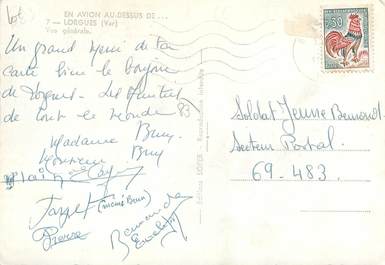 EN AVION AU-DESSUS DE...
7 — LORGUES (Var)
Vue générale.
Un grand merci de ta
carte bien le bonjour
de Lorgues. Les Amitiés
de tout le monde 83)
Madame Brun
Monsieur Brun
Alain
Jarzet (
Pierre
Bernard
Éditions SOFER
Reproduction interdite
0,30
Soldat Bernard.
Secteur Postal.
69-483.